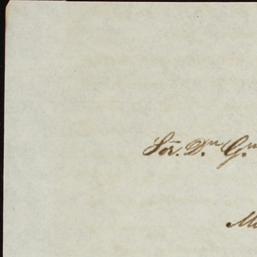 Sōr. Dn. G.
M